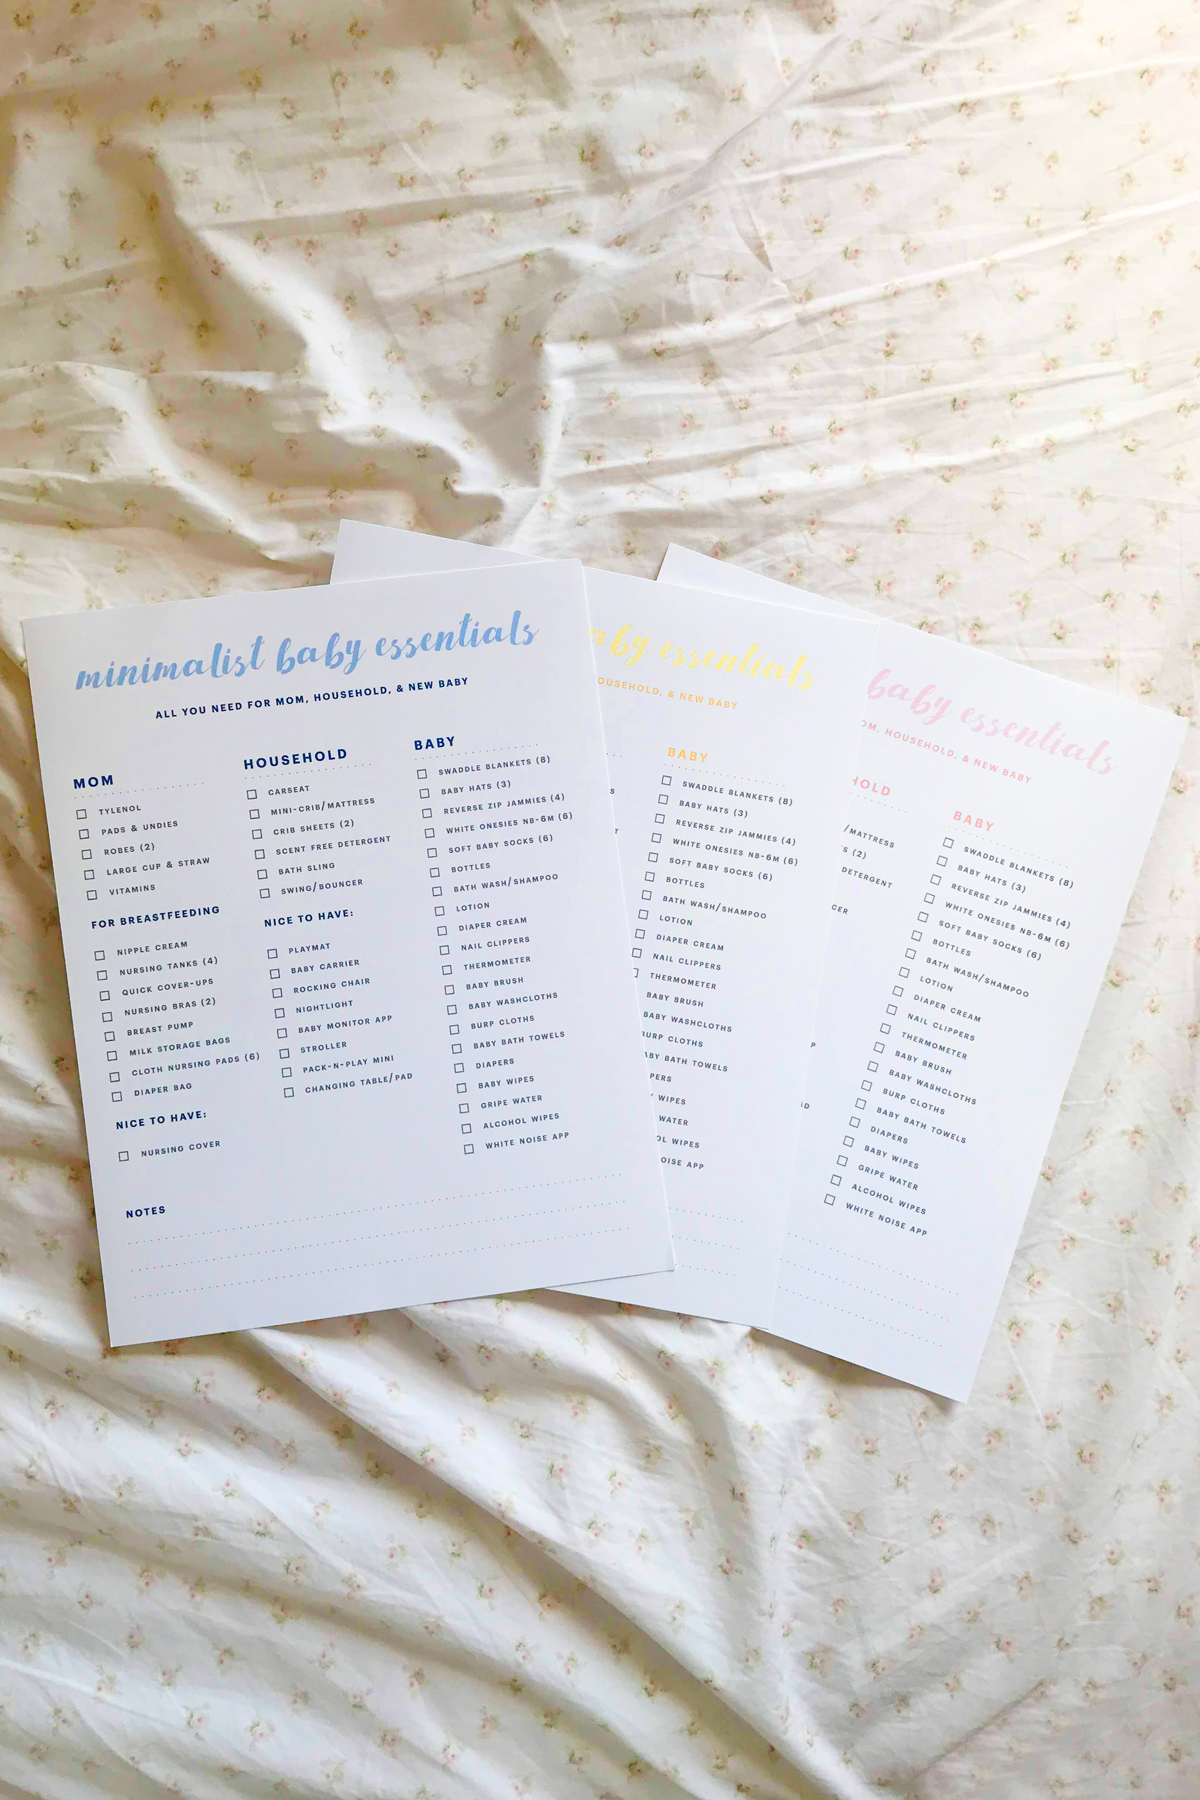 minimalist baby essentials
ALL YOU NEED FOR MOM, HOUSEHOLD, & NEW BABY
MOM
TYLENOL
PADS & UNDIES
ROBES (2)
LARGE CUP & STRAW
VITAMINS
FOR BREASTFEEDING
NIPPLE CREAM
NURSING TANKS (4)
QUICK COVER-UPS
NURSING BRAS (2)
BREAST PUMP
MILK STORAGE BAGS
CLOTH NURSING PADS (6)
DIAPER BAG
NICE TO HAVE:
NURSING COVER
HOUSEHOLD
CARSEAT
MINI-CRIB/MATTRESS
CRIB SHEETS (2)
SCENT FREE DETERGENT
BATH SLING
SWING/BOUNCER
NICE TO HAVE:
PLAYMAT
BABY CARRIER
ROCKING CHAIR
NIGHTLIGHT
BABY MONITOR APP
STROLLER
PACK-N-PLAY MINI
CHANGING TABLE/PAD
BABY
SWADDLE BLANKETS (8)
BABY HATS (3)
REVERSE ZIP JAMMIES (4)
WHITE ONESIES NB-6M (6)
SOFT BABY SOCKS (6)
BOTTLES
BATH WASH/SHAMPOO
LOTION
DIAPER CREAM
NAIL CLIPPERS
THERMOMETER
BABY BRUSH
BABY WASHCLOTHS
BURP CLOTHS
BABY BATH TOWELS
DIAPERS
BABY WIPES
GRIPE WATER
ALCOHOL WIPES
WHITE NOISE APP
NOTES
aby essentials
OUSEHOLD, & NEW BABY
BABY
SWADDLE BLANKETS (8)
BABY HATS (3)
REVERSE ZIP JAMMIES (4)
WHITE ONESIES NB-6M (6)
SOFT BABY SOCKS (6)
BOTTLES
BATH WASH/SHAMPOO
LOTION
DIAPER CREAM
NAIL CLIPPERS
THERMOMETER
BABY BRUSH
BABY WASHCLOTHS
URP CLOTHS
ABY BATH TOWELS
PERS
WIPES
WATER
OL WIPES
OISE APP
baby essentials
OM, HOUSEHOLD, & NEW BABY
HOLD
/MATTRESS
S (2)
DETERGENT
CER
P
AD
BABY
SWADDLE BLANKETS (8)
BABY HATS (3)
REVERSE ZIP JAMMIES (4)
WHITE ONESIES NB-6M (6)
SOFT BABY SOCKS (6)
BOTTLES
BATH WASH/SHAMPOO
LOTION
DIAPER CREAM
NAIL CLIPPERS
THERMOMETER
BABY BRUSH
BABY WASHCLOTHS
BURP CLOTHS
BABY BATH TOWELS
DIAPERS
BABY WIPES
GRIPE WATER
ALCOHOL WIPES
WHITE NOISE APP